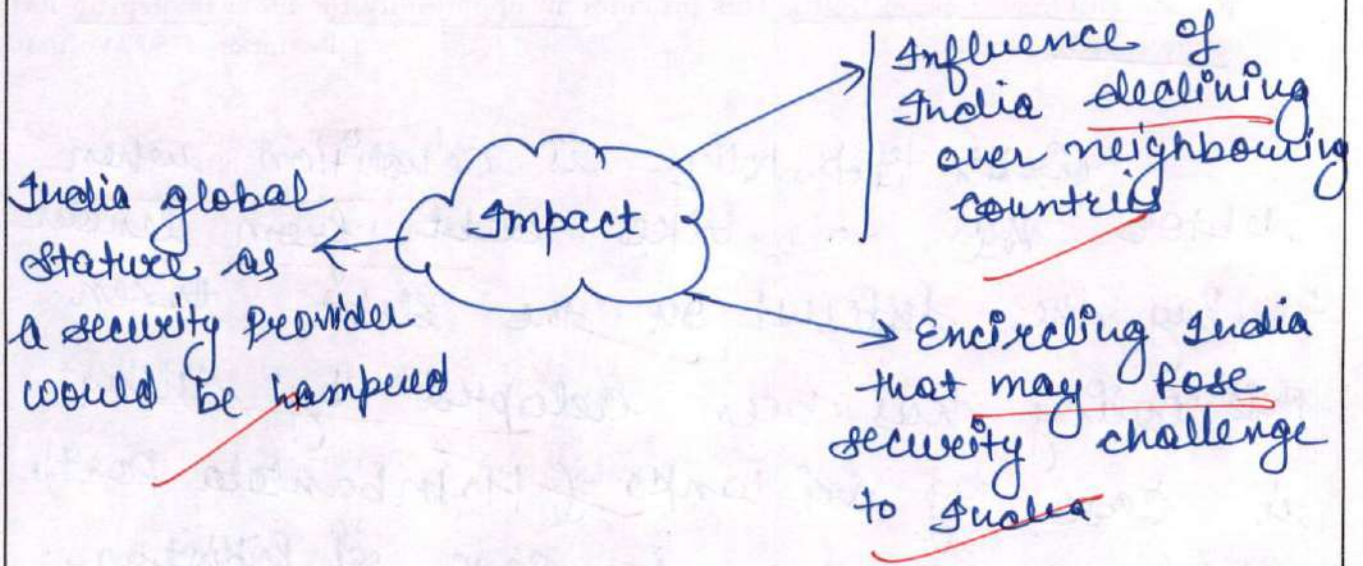 Influence of
India declining
over neighbouring
countries
Impact
India global
stature as
a security provider
would be hampered
Encircling India
that may pose
security challenge
to India